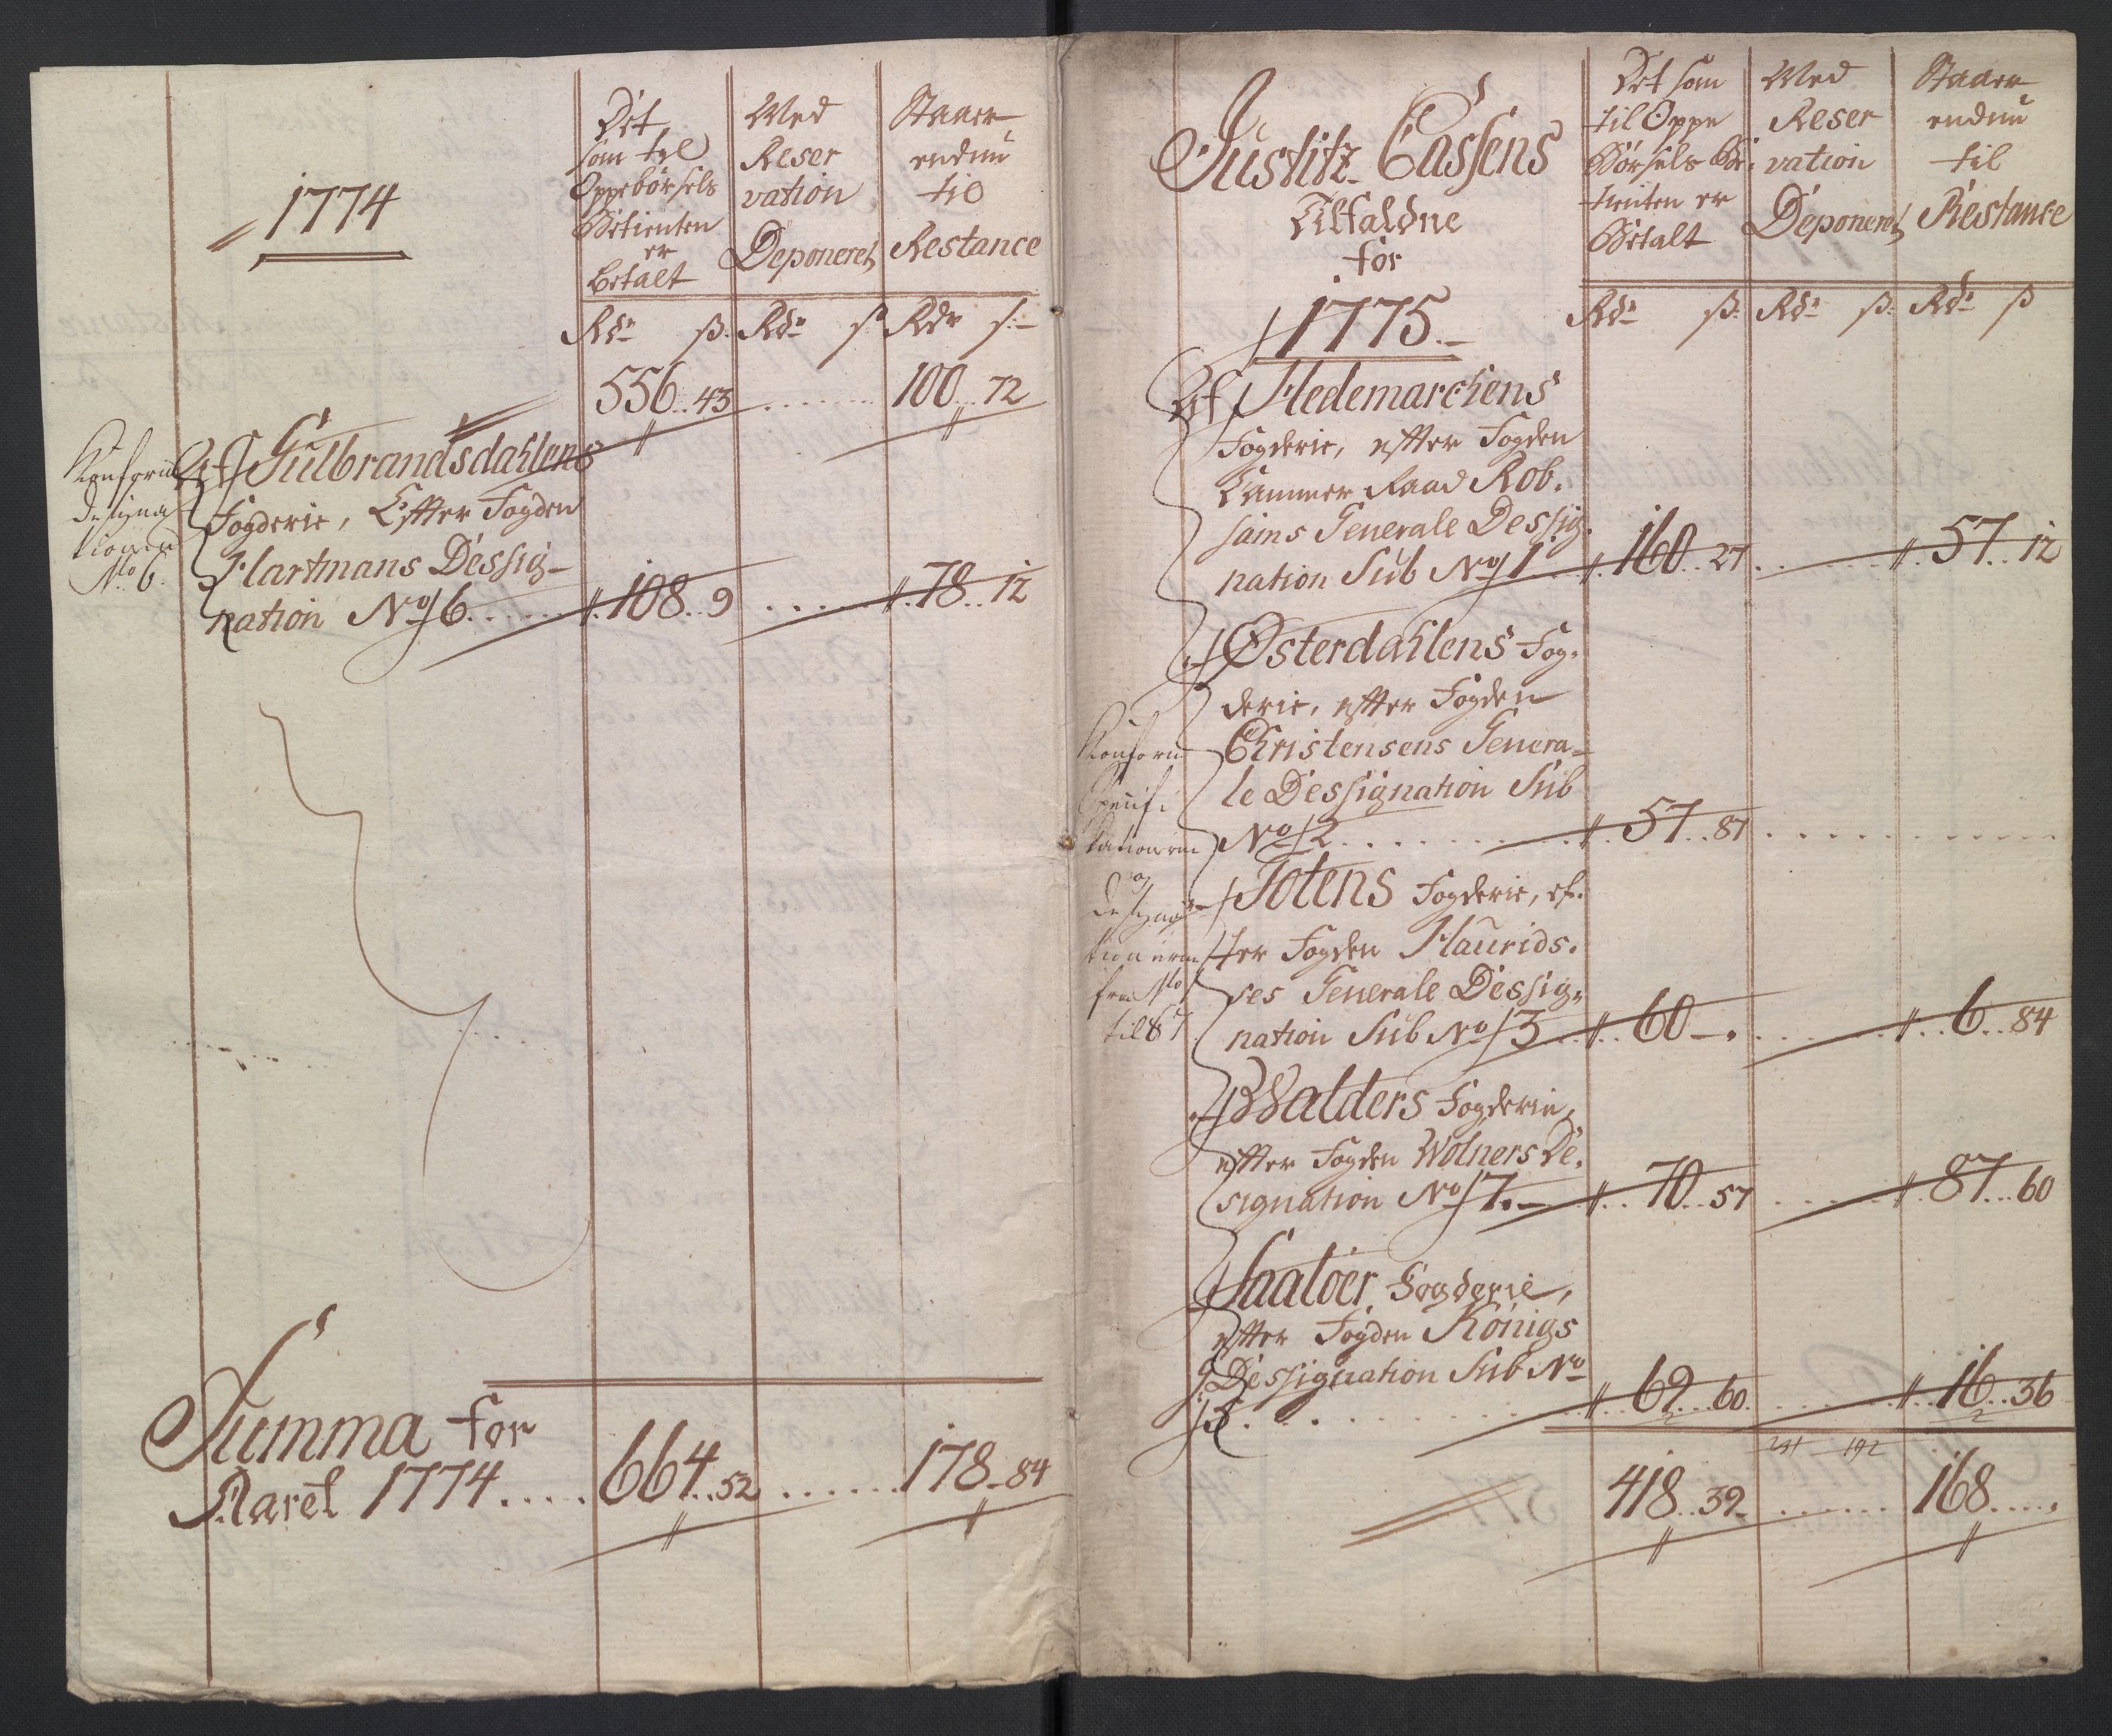 1774
Det
som til
Oppebørsels
Betienten
er
betalt
Med
Reser
vation
Deponeret
Staaer
endnu
til
Restance
Rdr ß. Rdr ß Rdr ß.
556..43 ....... 100..72
Af Gulbrandsdahlens
Fogderie, Effter Fogden
Hartmans Dessig-
nation No 6...... 108..9 ...... 78..12
Konform
designa
tionen
No 6.
Summa for
Aaret 1774..... 664..52 ....... 178..84
Justitz Cassens
Tilfaldne
for
1775.
Det som
til Oppe
Børsels Be-
tienten er
Betalt
Med
Reser
vation
Deponeret
Staaer
endnu
til
Restance
Rdr ß. Rdr ß. Rdr ß
Af Hedemarckens
Fogderie, effter Fogden
Cammer Raad Rob.
sams Generale Dessig.
nation Sub No 1 160..27. ...... 57..12
Østerdahlens Fog.
derie, effter Fogden
Christensens Genera-
le Dessignation Sub
No 2......... 57..87. ..........
Totens Fogderie, ef.
ter Fogden Haurids.
ses Generale Dessig.
nation Sub No 3 60 – . ...... 6..84
Walders Fogderie,
effter Fogden Wolners De.
signation No 7. 70..57 ...... 87..60
Saaloer Fogderie,
effter Fogden Königs
Dessignation Sub No
5......... 69..60. ...... 16..36
Konform
Specifi
kationerne
og
designa
tionerne
fra No 1
til 67
291 192
418..39 ...... 168....